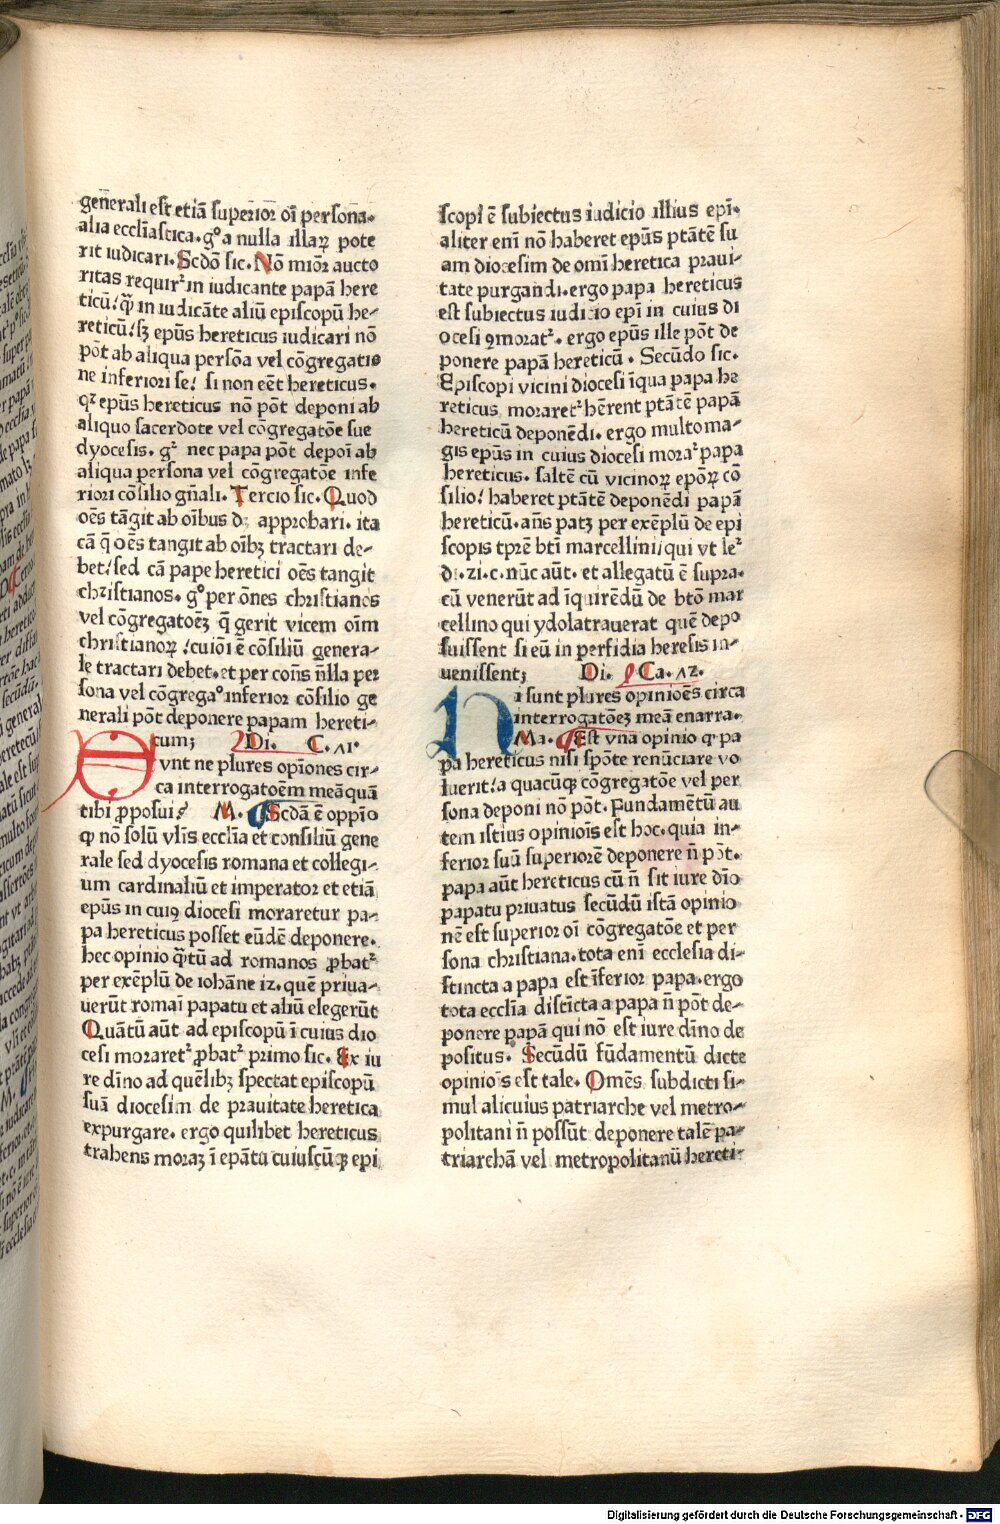 gen̄erali est etiā superior̄ oī persona-
alia eccliastica. gº a nulla illaꝝ pote
rit iudicari. Scdō sic. Nō mior̄ aucto
ritas requirᷣ in iudicante papā here
ticū! qᷓ in iudicāte aliū episcopū he-
reticū! sꝫ epūs hereticus iudicari nō
pōt ab aliqua persōa vel cōgregatio
ne inferiori se! si non eēt hereticus.
qꝛ epūs hereticus nō pōt deponi ab
aliquo sacerdote vel cōgregatōe sue
dyocesis. gº nec papa pōt depoī ab
aliqua persona vel cōgregatōe infe
riori cōsilio gn̄ali. Tercio sic. Quod
oēs tāgit ab oībus dꝫ approbari. ita
cā q̄ oēs tangit ab oībꝫ tractari de-
bet! sed cā pape heretici oēs tangit
christianos. gº per ōnes christianos
vel cōgregatōeꝫ q̄ gerit vicem oīm
christianoꝝ! cuiōi ē cōsiliū genera-
le tractari debet. et per coñs n̄lla per
sona vel cōgregaº inferior cōsilio ge
nerali pōt deponere papam hereti-
cum; Di. C. ʌı.
Sunt ne plures opīones cir-
ca interrogatoēm meā quā
tibi ꝓposui? M. Scdā ē oppīo
ꝙ nō solū vlis ecclīa et consiliū gene
rale sed dyocesis romana et collegi-
um cardinaliū et imperator et etiā
epūs in cuiꝯ diocesi moraretur pa-
pa hereticus posset eūdē deponere.
hec opinio qᷓtū ad romanos ꝓbatᷣ
per exēplū de iohāne iz. quē priua-
uerūt romaī papatu et aliū elegerūt
Quātū aūt ad episcopū ī cuius dio
cesi moraretᷣ ꝓbatᷣ primo sic. Ex iu
re dīno ad quēlibꝫ spectat episcopū
suā diocesim de prauitate heretica
expurgare. ergo quilibet hereticus
trahens moraꝫ ī epātu cuiuscūqꝫ epi
scopī ē subiectus iudicio illius epī.
aliter enī nō haberet epūs ptātē su
am diocesim de omī heretica praui-
tate purgandi. ergo papa hereticus
est subiectus iudicio epī in cuius di
ocesi ꝯmoratᷣ. ergo epūs ille pōt de
ponere papā hereticū. Secūdo sic.
Episcopi vicini diocesi īqua papa he
reticus moraretᷣ hērent ptātē papā
hereticū deponēdi. ergo multo ma-
gis epūs in cuius diocesi moraᷣ papa
hereticus. saltē cū vicinoꝝ epōꝝ cō
silio! haberet ptātē deponēdi papā
hereticū. añs patꝫ per exēplū de epi
scopis tp̄re btī marcellini, qui vt leᷣ
di. zi. c. nūc aūt. et allegatū ē supra.
cū venerūt ad īquirēdū de btō mar
cellino qui ydolatrauerat quē depo
suissent si eū in perfidia heresis in-
uenissent; Di. Ca. ʌz.
Hi sunt plures opinioēs circa
interrogatōeꝫ meā enarra.
Ma. Est vna opinio ꝙ pa
pa hereticus nisi spōte renūciare vo
luerit! a quacūqꝫ cōgregatōe vel per
sona deponi nō pōt. Fundamētū au
tem istius opinioīs est hoc. quia in-
ferior suū superiorē deponere n̄ pōt.
papa aūt hereticus cū n̄ sit iure dīo
papatu priuatus secūdū istā opinio
nē est superior oī cōgregatōe et per
sona christiana. tota enī ecclesia di-
stincta a papa est īferior papa. ergo
tota ecclīa distīcta a papa n̄ pōt de-
ponere papā qui nō est iure dīno de
positus. Secūdū fūdamētū dicte
opinioīs est tale. Omēs subdicti si-
mul alicuius patriarche vel metro-
politani n̄ possūt deponere talē pa-
triarchā vel metropolitanū hereti-
Digitalisierung gefördert durch die Deutsche Forschungsgemeinschaft - DFG